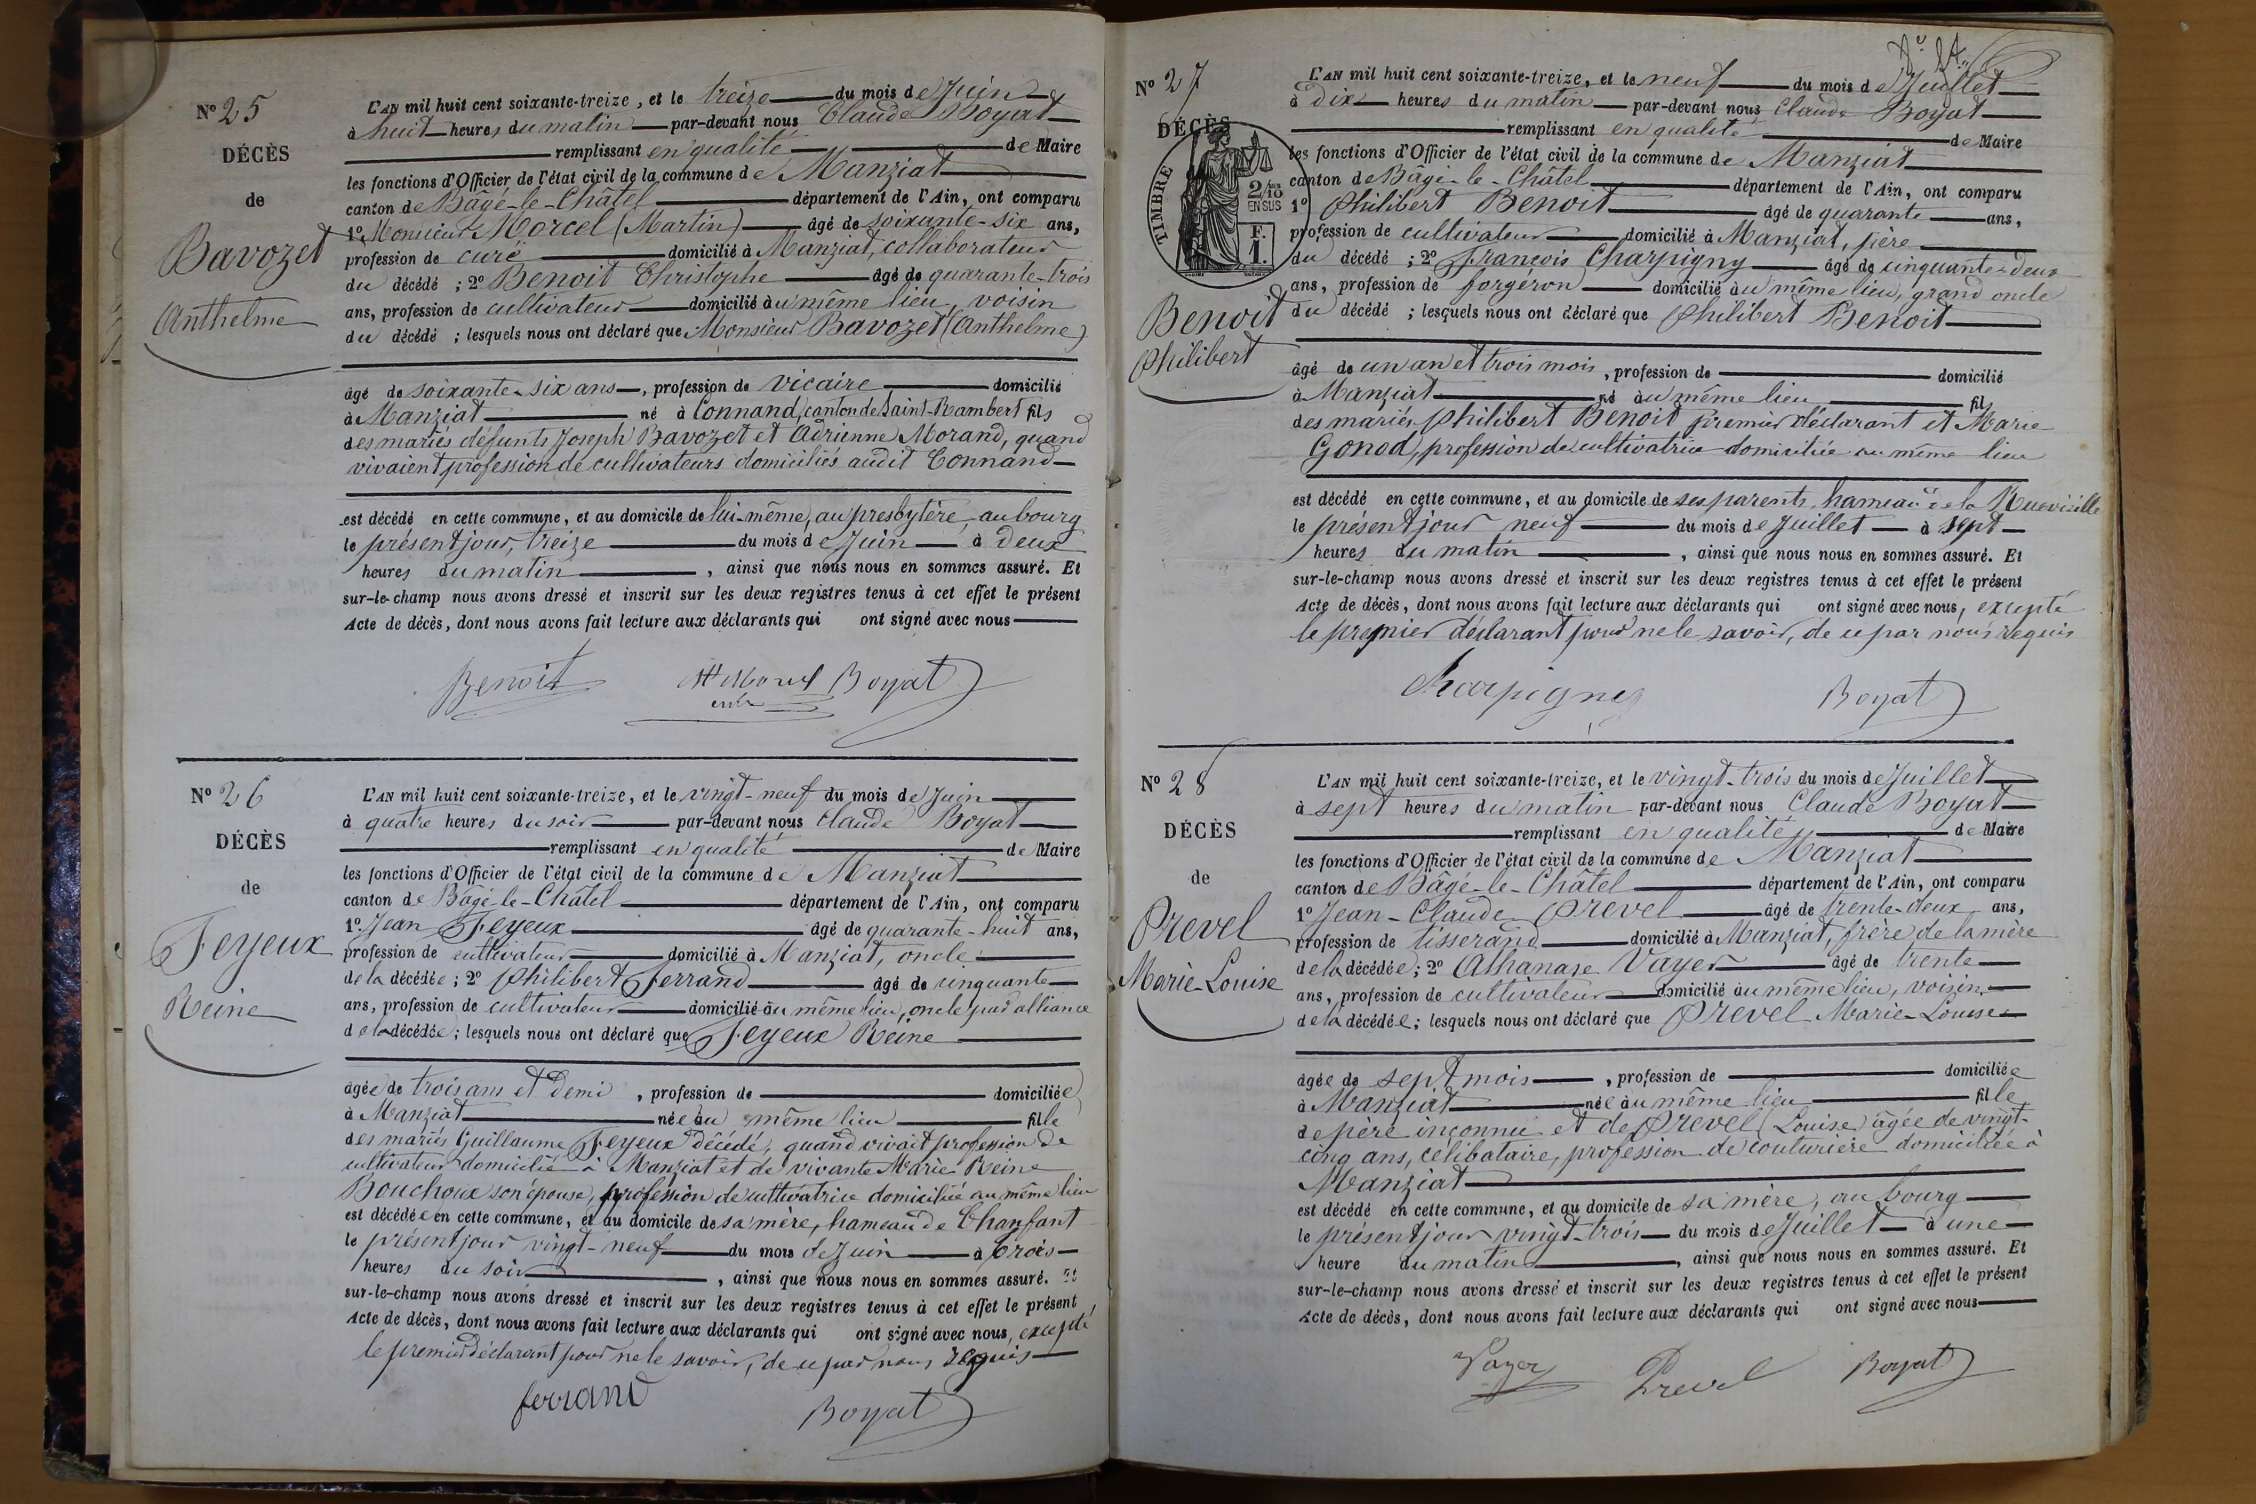 N° 25
DÉCÈS
de
Bavozet
Anthelme
L'AN mil huit cent soixante-treize, et le treize du mois de Juin
à huit heures du matin par-devant nous Claude Boyat
remplissant en qualité de Maire
les fonctions d'Officier de l'état civil de la commune de Manziat
canton de Bâgé-le-Châtel département de l'Ain, ont comparu
1° Monsieur Morcel (Martin) âgé de soixante-six ans,
profession de curé domicilié à Manziat, collaborateur
du décédé ; 2° Benoit Christophe âgé de quarante-trois
ans, profession de cultivateur domicilié au même lieu, voisin
du décédé ; lesquels nous ont déclaré que Monsieur Bavozet (Anthelme)
âgé de soixante-six ans, profession de vicaire domicilié
à Manziat né à Connand, canton de Saint-Rambert fils
des mariés défunts Joseph Bavozet et Adrienne Morand, quand
vivaient profession de cultivateurs domiciliés audit Connand
est décédé en cette commune, et au domicile de lui-même, au presbytère, au bourg
le présent jour, treize du mois de Juin à deux
heures du matin, ainsi que nous nous en sommes assuré. Et
sur-le-champ nous avons dressé et inscrit sur les deux registres tenus à cet effet le présent
Acte de décès, dont nous avons fait lecture aux déclarants qui ont signé avec nous
Benoit Morcel Boyat
curé
N° 26
DÉCÈS
de
Feyeux
Reine
L'AN mil huit cent soixante-treize, et le vingt-neuf du mois de Juin
à quatre heures du soir par-devant nous Claude Boyat
remplissant en qualité de Maire
les fonctions d'Officier de l'état civil de la commune de Manziat
canton de Bâgé-le-Châtel département de l'Ain, ont comparu
1° Jean Feyeux âgé de quarante-huit ans,
profession de cultivateur domicilié à Manziat, oncle
de la décédée ; 2° Philibert Ferrand âgé de cinquante
ans, profession de cultivateur domicilié au même lieu, oncle par alliance
de la décédée ; lesquels nous ont déclaré que Feyeux Reine
âgée de trois ans et demi, profession de domiciliée
à Manziat née au même lieu fille
des mariés Guillaume Feyeux décédé, quand vivait profession de
cultivateur domicilié à Manziat et de vivante Marie Reine
Bouchoux son épouse, profession de cultivatrice domiciliée au même lieu
est décédée en cette commune, et au domicile de sa mère, hameau de Chanfant
le présent jour vingt-neuf du mois de Juin à trois
heures du soir, ainsi que nous nous en sommes assuré. Et
sur-le-champ nous avons dressé et inscrit sur les deux registres tenus à cet effet le présent
Acte de décès, dont nous avons fait lecture aux déclarants qui ont signé avec nous, excepté
le premier déclarant pour ne le savoir, de ce par nous requis
ferrand Boyat
N° 27
DÉCÈS
TIMBRE
2/10
EN SUS
F.
1.
Benoit
Philibert
L'AN mil huit cent soixante-treize, et le neuf du mois de Juillet
à dix heures du matin par-devant nous Claude Boyat
remplissant en qualité de Maire
les fonctions d'Officier de l'état civil de la commune de Manziat
canton de Bâgé-le-Châtel département de l'Ain, ont comparu
1° Philibert Benoit âgé de quarante ans,
profession de cultivateur domicilié à Manziat, père
du décédé ; 2° François Charpigny âgé de cinquante-deux
ans, profession de forgéron domicilié au même lieu, grand oncle
du décédé ; lesquels nous ont déclaré que Philibert Benoit
âgé de un an et trois mois, profession de domicilié
à Manziat né au même lieu fils
des mariés Philibert Benoit premier déclarant et Marie
Gonod, profession de cultivatrice domiciliée au même lieu
est décédé en cette commune, et au domicile de ses parents, hameau de la
le présent jour neuf du mois de Juillet à sept
heures du matin, ainsi que nous nous en sommes assuré. Et
sur-le-champ nous avons dressé et inscrit sur les deux registres tenus à cet effet le présent
Acte de décès, dont nous avons fait lecture aux déclarants qui ont signé avec nous, excepté
le premier déclarant pour ne le savoir, de ce par nous requis
Charpigny Boyat
N° 28
DÉCÈS
de
Prevel
Marie-Louise
L'AN mil huit cent soixante-treize, et le vingt-trois du mois de Juillet
à sept heures du matin par-devant nous Claude Boyat
remplissant en qualité de Maire
les fonctions d'Officier de l'état civil de la commune de Manziat
canton de Bâgé-le-Châtel département de l'Ain, ont comparu
1° Jean-Claude Prevel âgé de trente-deux ans,
profession de tisserand domicilié à Manziat, frère de la mère
de la décédée ; 2° Athanase Vayer âgé de trente
ans, profession de cultivateur domicilié au même lieu, voisin
de la décédée ; lesquels nous ont déclaré que Prevel Marie-Louise
âgée de sept mois, profession de domiciliée
à Manziat née au même lieu fille
de père inconnu et de Prevel (Louise) âgée de vingt-
cinq ans, célibataire, profession de couturière domiciliée à
Manziat
est décédé en cette commune, et au domicile de sa mère, au bourg
le présent jour vingt-trois du mois de Juillet à une
heure du matin, ainsi que nous nous en sommes assuré. Et
sur-le-champ nous avons dressé et inscrit sur les deux registres tenus à cet effet le présent
Acte de décès, dont nous avons fait lecture aux déclarants qui ont signé avec nous
Vayer Prevel Boyat